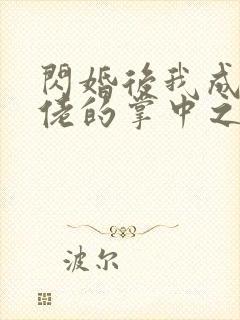 閃婚後我成
佬的掌中之
波尔